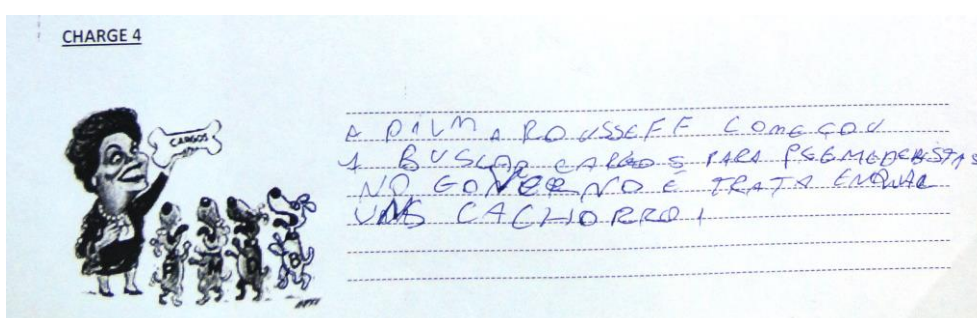 CHARGE 4
CARGOS
P M D B
A DILMA ROUSSEFF COMEÇOU
A BUSCAR CARGOS PARA PEEMEDEBISTAS
NO GOVERNO É TRATA
UMS CACHORRO!